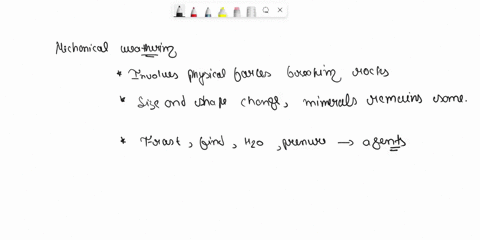 Mechanical weathering
* Involves physical forces breaking rocks
* Size and shape change, minerals remains same.
* Frost, wind, H2O, pressure → agents